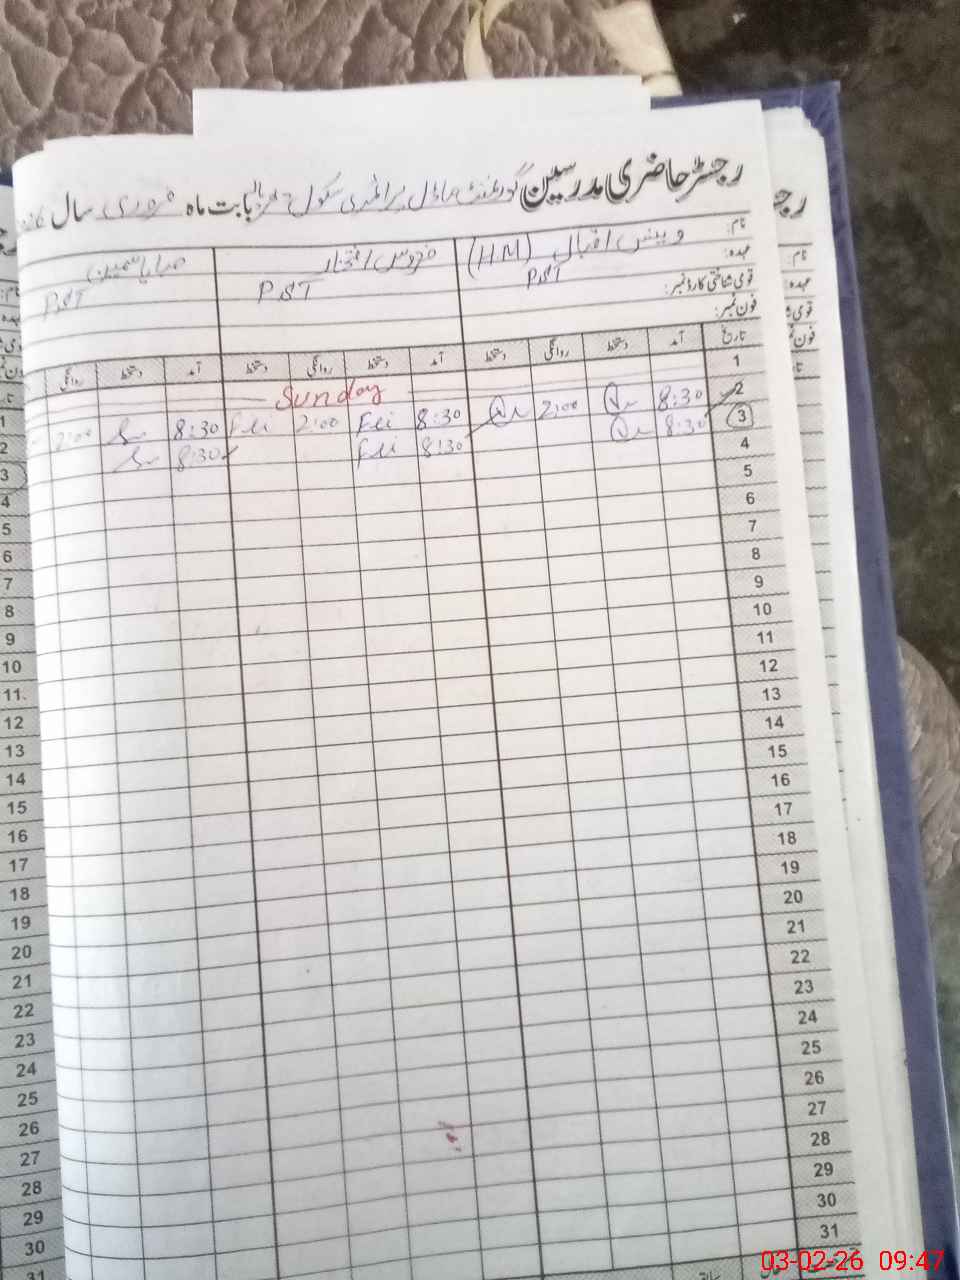 رجسٹر حاضری مدرسین گورنمنٹ ماڈل پرائمری سکول بابت ماہ فروری سال
نام: وینس اقبال (HM) فردوس افتخار صبا یاسمین
عہدہ: PST PST PST
قومی شناختی کارڈ نمبر:
فون نمبر:
تاریخ آمد دستخط روانگی دستخط آمد دستخط روانگی دستخط آمد دستخط روانگی
1 Sunday
2 8:30 2:00 8:30 2:00 8:30 2:00
3 8:30 8:30 8:30
4
5
6
7
8
9
10
11
12
13
14
15
16
17
18
19
20
21
22
23
24
25
26
27
28
29
30
31
03-02-26 09:47